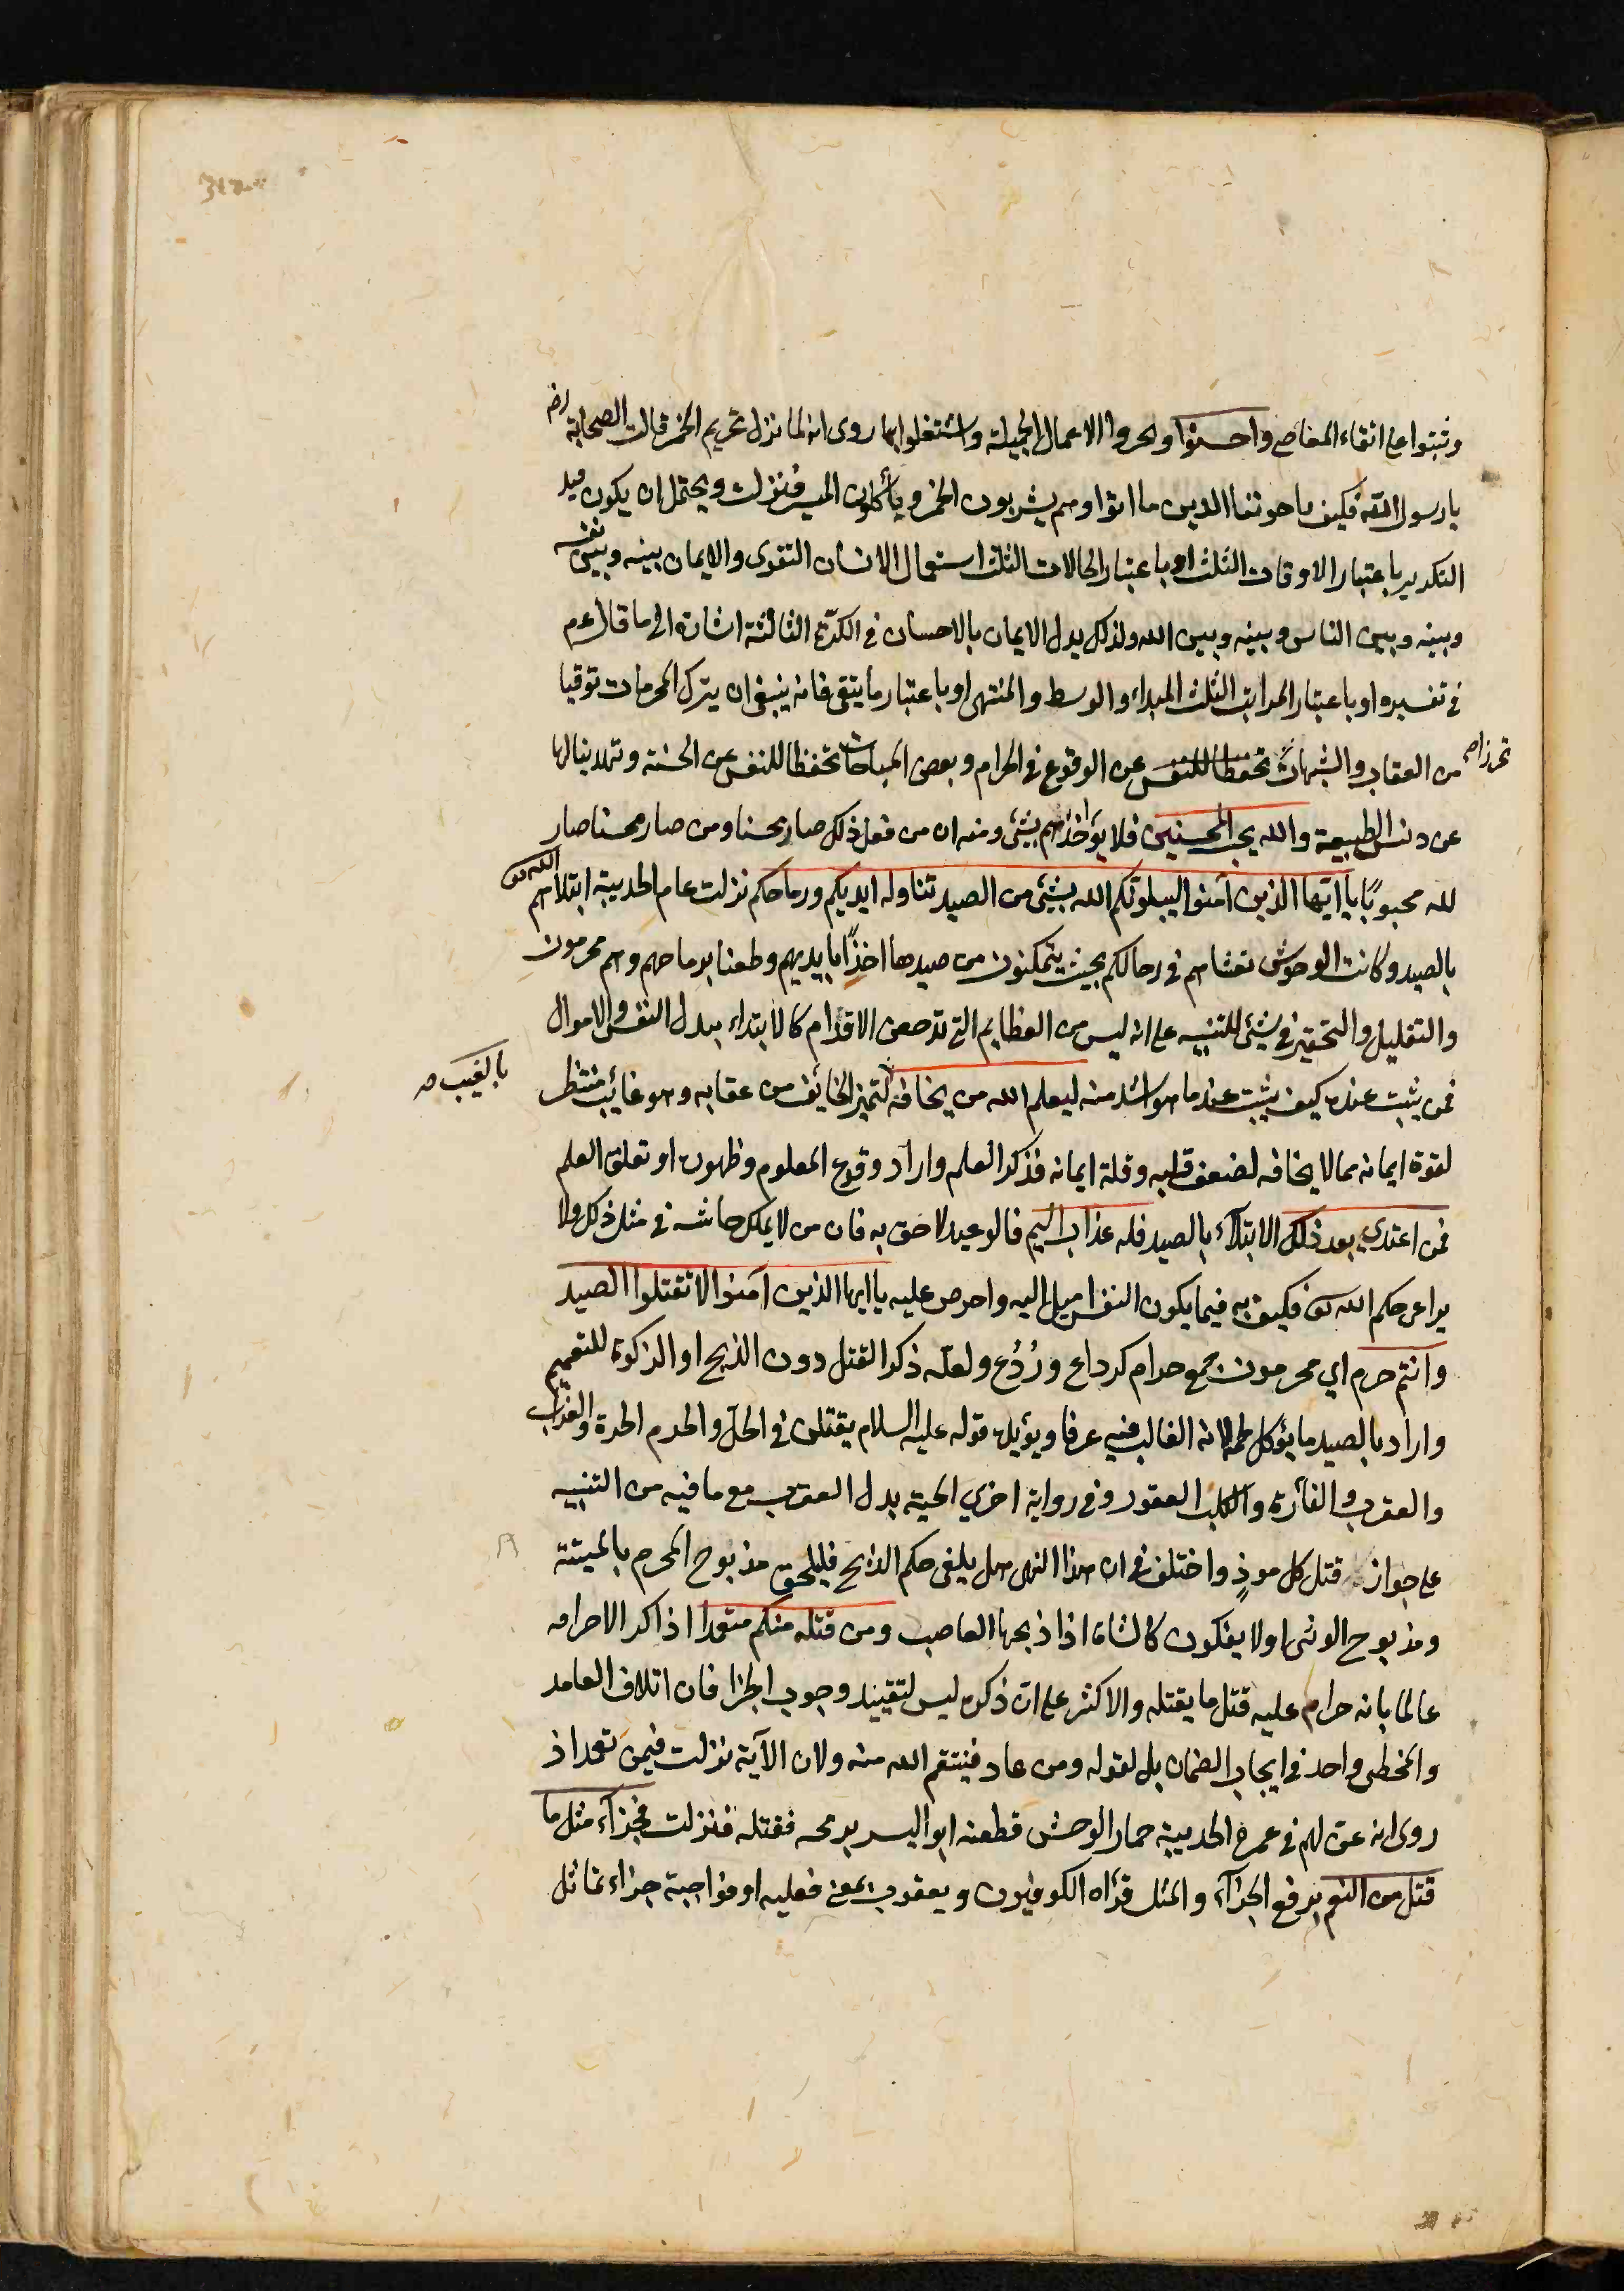 وثبتوا على اتقاء المعاصي واحسنوا وتحروا الاعمال الجميلة واشتغلوا بها روى انه لما نزل تحريم الخمر قالت الصحابة رضه
يا رسول الله فكيف باخوتنا الذين ماتوا وهم يشربون الخمر ويأكلون الميسر فنزلت ويحتمل ان يكون هذا
التكرير باعتبار الاوقات الثلث او باعتبار الحالات الثلث استعمال الانسان التقوى والايمان بينه وبين نفسه
وبينه وبين الناس وبينه وبين الله ولذلك بدل الايمان بالاحسان في الكرة الثالثة اشارة الى ما قال عم
في تفسيره او باعتبار المراتب الثلث المبداء والوسط والمنتهى او باعتبار ما يتقى فانه ينبغي ان يترك المحرمات توقيا
من العقاب والشبهات تحفظا للنفس عن الوقوع في الحرام وبعض المباحات تحفظا للنفس عن الخسة وتهذيبا لها
تحرزا صح
عن دنس الطبيعة والله يحب المحسنين فلا يؤاخذهم بشئ ومنه ان من فعل ذلك صار محسنا ومن صار محسنا صار
لله محبوبًا يا ايّها الذين آمنوا ليبلونّكم الله بشئ من الصيد تناوله ايديكم ورماحكم نزلت عام الحديبية ابتلاهم الله تعالى
بالصيد وكانت الوحوش تغشاهم في رحالكم بحيث يتمكنون من صيدها اخذًا بايديهم وطعنا برماحهم وهم محرمون
والتقليل والتحقير في بشئ للتنبيه على انه ليس من العظايم التي تدحض الاقدام كالابتداء ببذل النفس والاموال
فمن يثبت عنده كيف يثبت عند ما هو اشد منه ليعلم الله من يخافه لتميز الخائف من عقابه وهو غائب منتظر
بالغيب صه
لقوة ايمانه مما لا يخافه لضعف قلبه وقلة ايمانه فذكر العلم واراد وقوع المعلوم وظهوره او تعلق العلم
فمن اعتدى بعد ذلك الابتلاء بالصيد فله عذاب اليم فالوعيد لاحق به فان من لا يملك جاشه في مثل ذلك ولا
يراعى حكم الله تعالى فكيف به فيما يكون النفس اميل اليه واحرص عليه يا ايها الذين آمنوا لا تقتلوا الصيد
وانتم حرم اي محرمون جمع حرام كرداع ورُدُع ولعله ذكر القتل دون الذبح او الذكوة للتعميم
واراد بالصيد ما يؤكل لحمه لانه الغالب فيه عرفا ويؤيده قوله عليه السلام يقتلن في الحلّ والحرم الحدة والغراب
والعقرب والفأرة والكلب العقور وفي رواية اخرى الحية بدل العقرب مع ما فيه من التنبيه
على جواز قتل كل موذٍ واختلف في ان هذا النهى هل يلغى حكم الذبح فيلحق مذبوح المحرم بالميتة
ومذبوح الوثنى او لا فيكون كالشاة اذا ذبحها الغاصب ومن قتله منكم متعمدا اذاكر الاحرامه
عالما بانه حرام عليه قتل ما يقتله والاكثر على ان ذكره ليس لتقييد وجوب الجزا فان اتلاف العامد
والمخطى واحد في ايجاب الضمان بل لقوله ومن عاد فينتقم الله منه ولان الآية نزلت فيمن تعمد اذ
روى انه عنّ لهم في عمرة الحديبية حمار الوحش فطعنه ابو اليسر برمحه فقتله فنزلت فجزآء مثل ما
قتل من النعم برفع الجزآء والمثل قرأه الكوفيون ويعقوب بمعنى فعليه او فواجبة جزاء تماثل